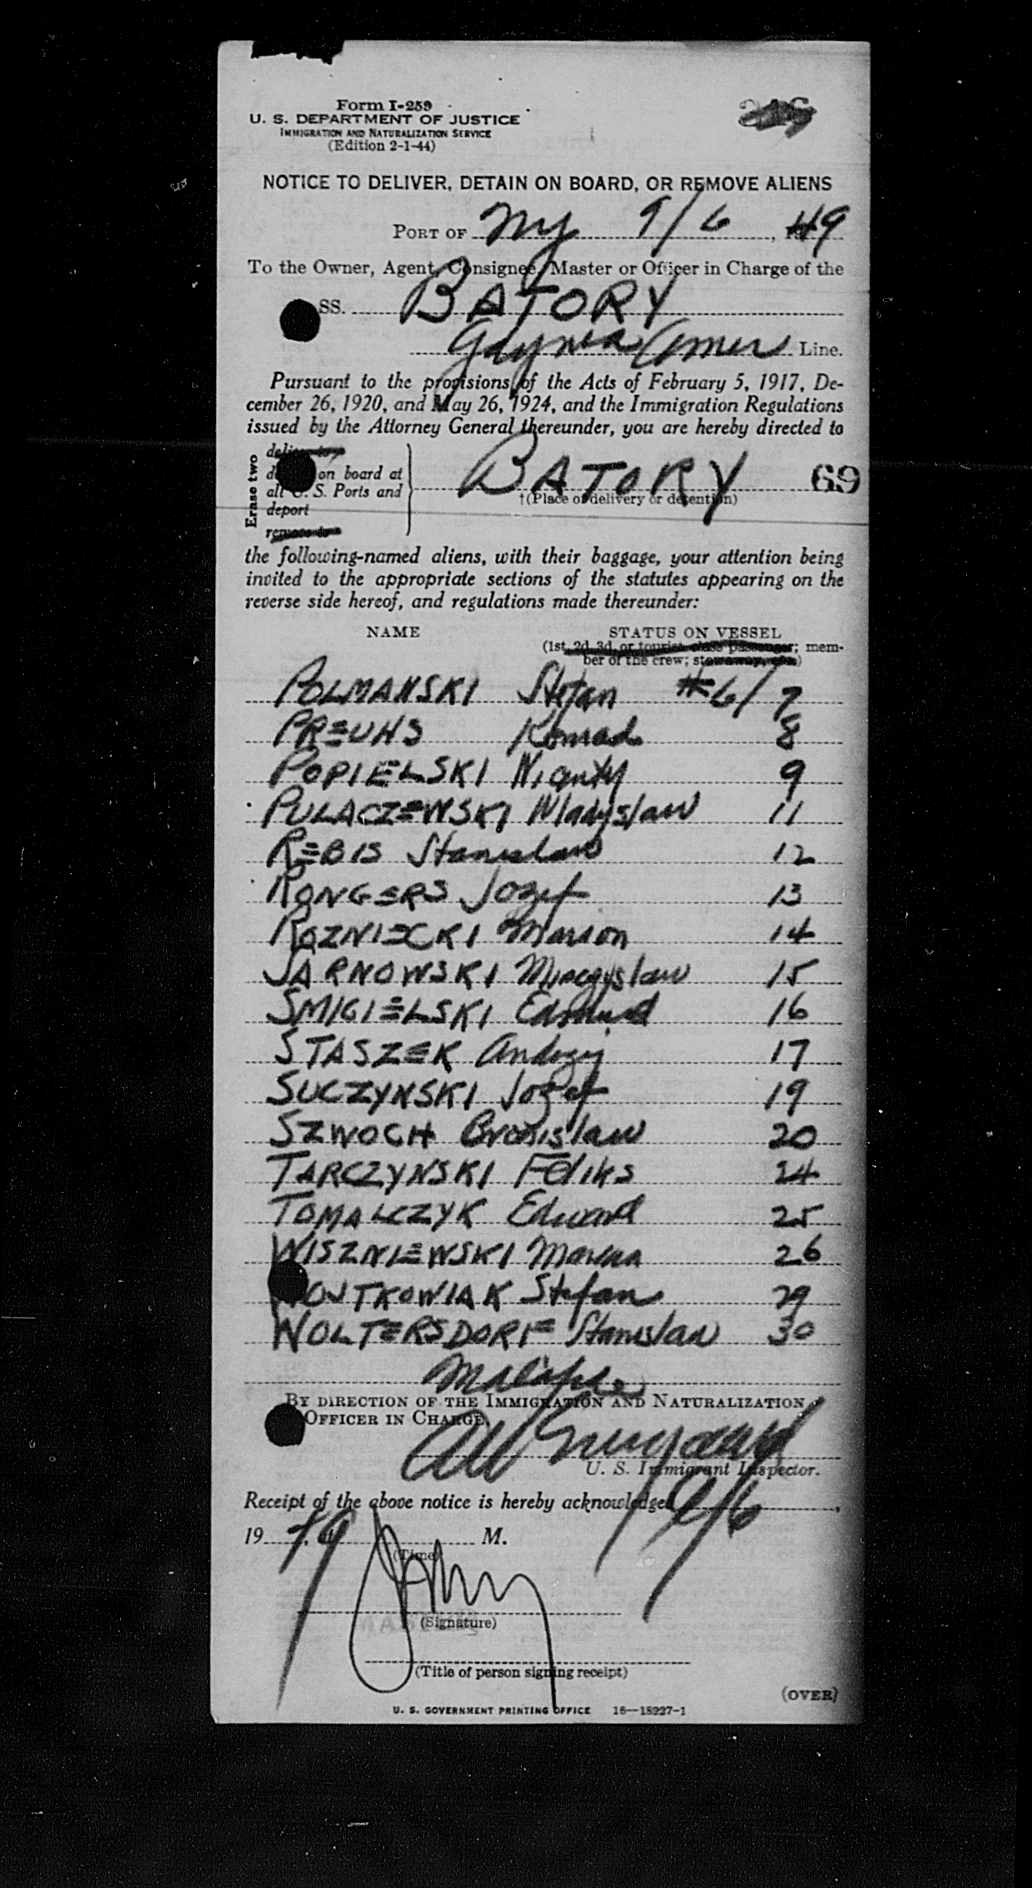 Form I-259
U. S. DEPARTMENT OF JUSTICE
IMMIGRATION AND NATURALIZATION SERVICE
(Edition 2-1-44)
NOTICE TO DELIVER, DETAIN ON BOARD, OR REMOVE ALIENS
PORT OF NY 9/6, 49
To the Owner, Agent, Consignee, Master or Officer in Charge of the
SS. BATORY
Gdynia Amer Line.
Pursuant to the provisions of the Acts of February 5, 1917, De-
cember 26, 1920, and May 26, 1924, and the Immigration Regulations
issued by the Attorney General thereunder, you are hereby directed to
Erase two
deliver to
on board at
all U. S. Ports and
deport
remove to
BATORY 69
†(Place of delivery or detention)
the following-named aliens, with their baggage, your attention being
invited to the appropriate sections of the statutes appearing on the
reverse side hereof, and regulations made thereunder:
NAME STATUS ON VESSEL
(1st, 2d, 3d, or tourist class passenger; mem-
ber of the crew; stowaway, etc.)
POLMANSKI Stefan #6/7
PREUHS Konrad 8
POPIELSKI 9
PULACZEWSKI Wladyslaw 11
REBIS Stanislaw 12
RONGERS Jozef 13
ROZNIECKI Marion 14
SARNOWSKI Mieczyslaw 15
SMIGIELSKI Edmund 16
STASZEK Andrzej 17
SUCZYNSKI Jozef 19
SZWOCH Bronislaw 20
TARCZYNSKI Feliks 24
TOMALCZYK Edward 25
WISZNIEWSKI 26
WOJTKOWIAK Stefan 29
WOLTERSDORF Stanislaw 30
Malafide
BY DIRECTION OF THE IMMIGRATION AND NATURALIZATION
OFFICER IN CHARGE,
U. S. Immigrant Inspector.
Receipt of the above notice is hereby acknowledged 9/6,
19 49 M.
(Time)
(Signature)
(Title of person signing receipt)
(OVER)
U. S. GOVERNMENT PRINTING OFFICE 16—18227-1